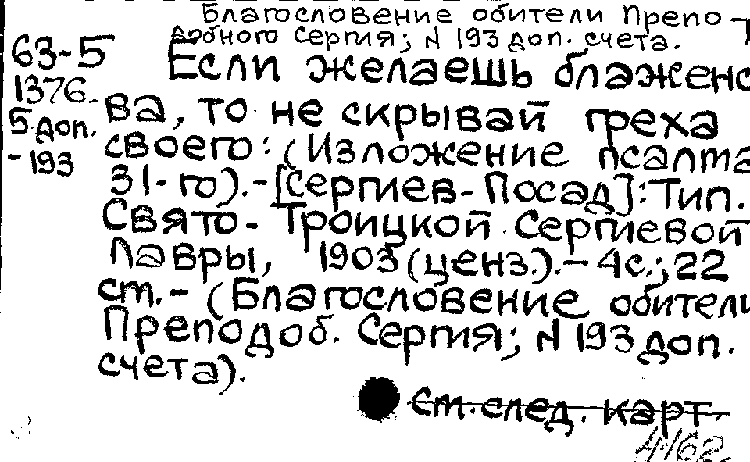 Благословение обители Препо-
добного Сергия; N 193 доп. счета.
63-5
1376.
5 доп.
-193
Если желаешь блаженст
ва, то не скрывай греха
своего: (Изложение псалма
31-го).-[Сергиев-Посад]: Тип.
Свято-Троицкой Сергиевой
Лавры, 1903 (ценз.).-4с.; 22
см.-(Благословение обители
Преподоб. Сергия; N 193 доп.
счета).
См. след. карт.
4162